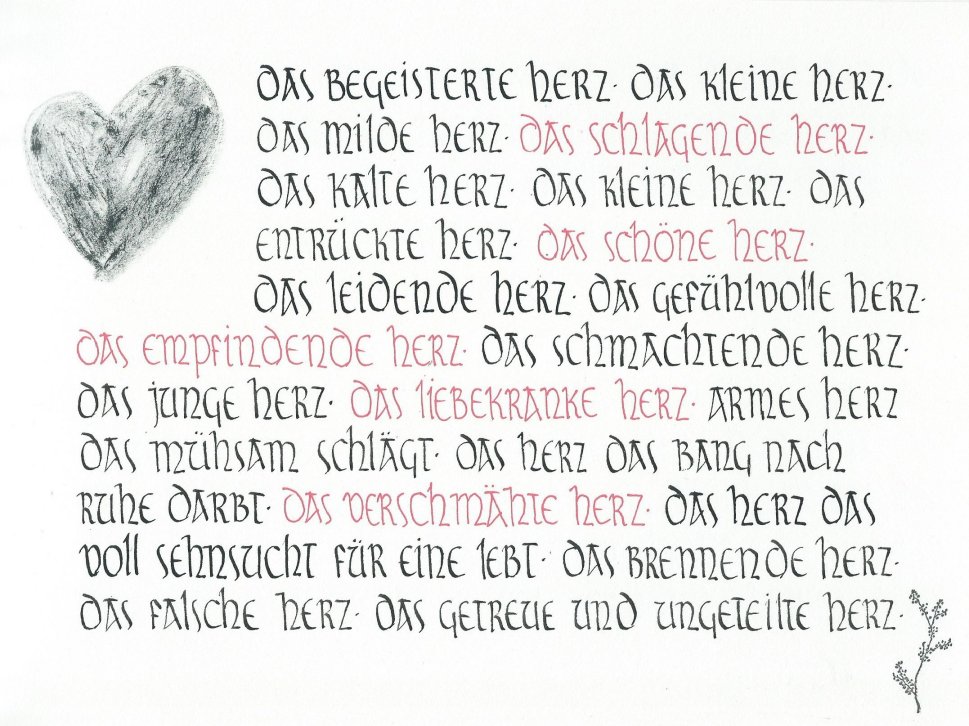 DAS BEGEISTERTE HERZ· DAS KLEINE HERZ·
DAS MILDE HERZ· DAS SCHLAGENDE HERZ·
DAS KALTE HERZ· DAS KLEINE HERZ· DAS
ENTRÜCKTE HERZ· DAS SCHÖNE HERZ·
DAS LEIDENDE HERZ· DAS GEFÜHLVOLLE HERZ·
DAS EMPFINDENDE HERZ· DAS SCHMACHTENDE HERZ·
DAS JUNGE HERZ· DAS LIEBEKRANKE HERZ· ARMES HERZ
DAS MÜHSAM SCHLÄGT· DAS HERZ DAS BANG NACH
RUHE DARBT· DAS VERSCHMÄHTE HERZ· DAS HERZ DAS
VOLL SEHNSUCHT FÜR EINE LEBT· DAS BRENNENDE HERZ·
DAS FALSCHE HERZ· DAS GETREUE UND UNGETEILTE HERZ·